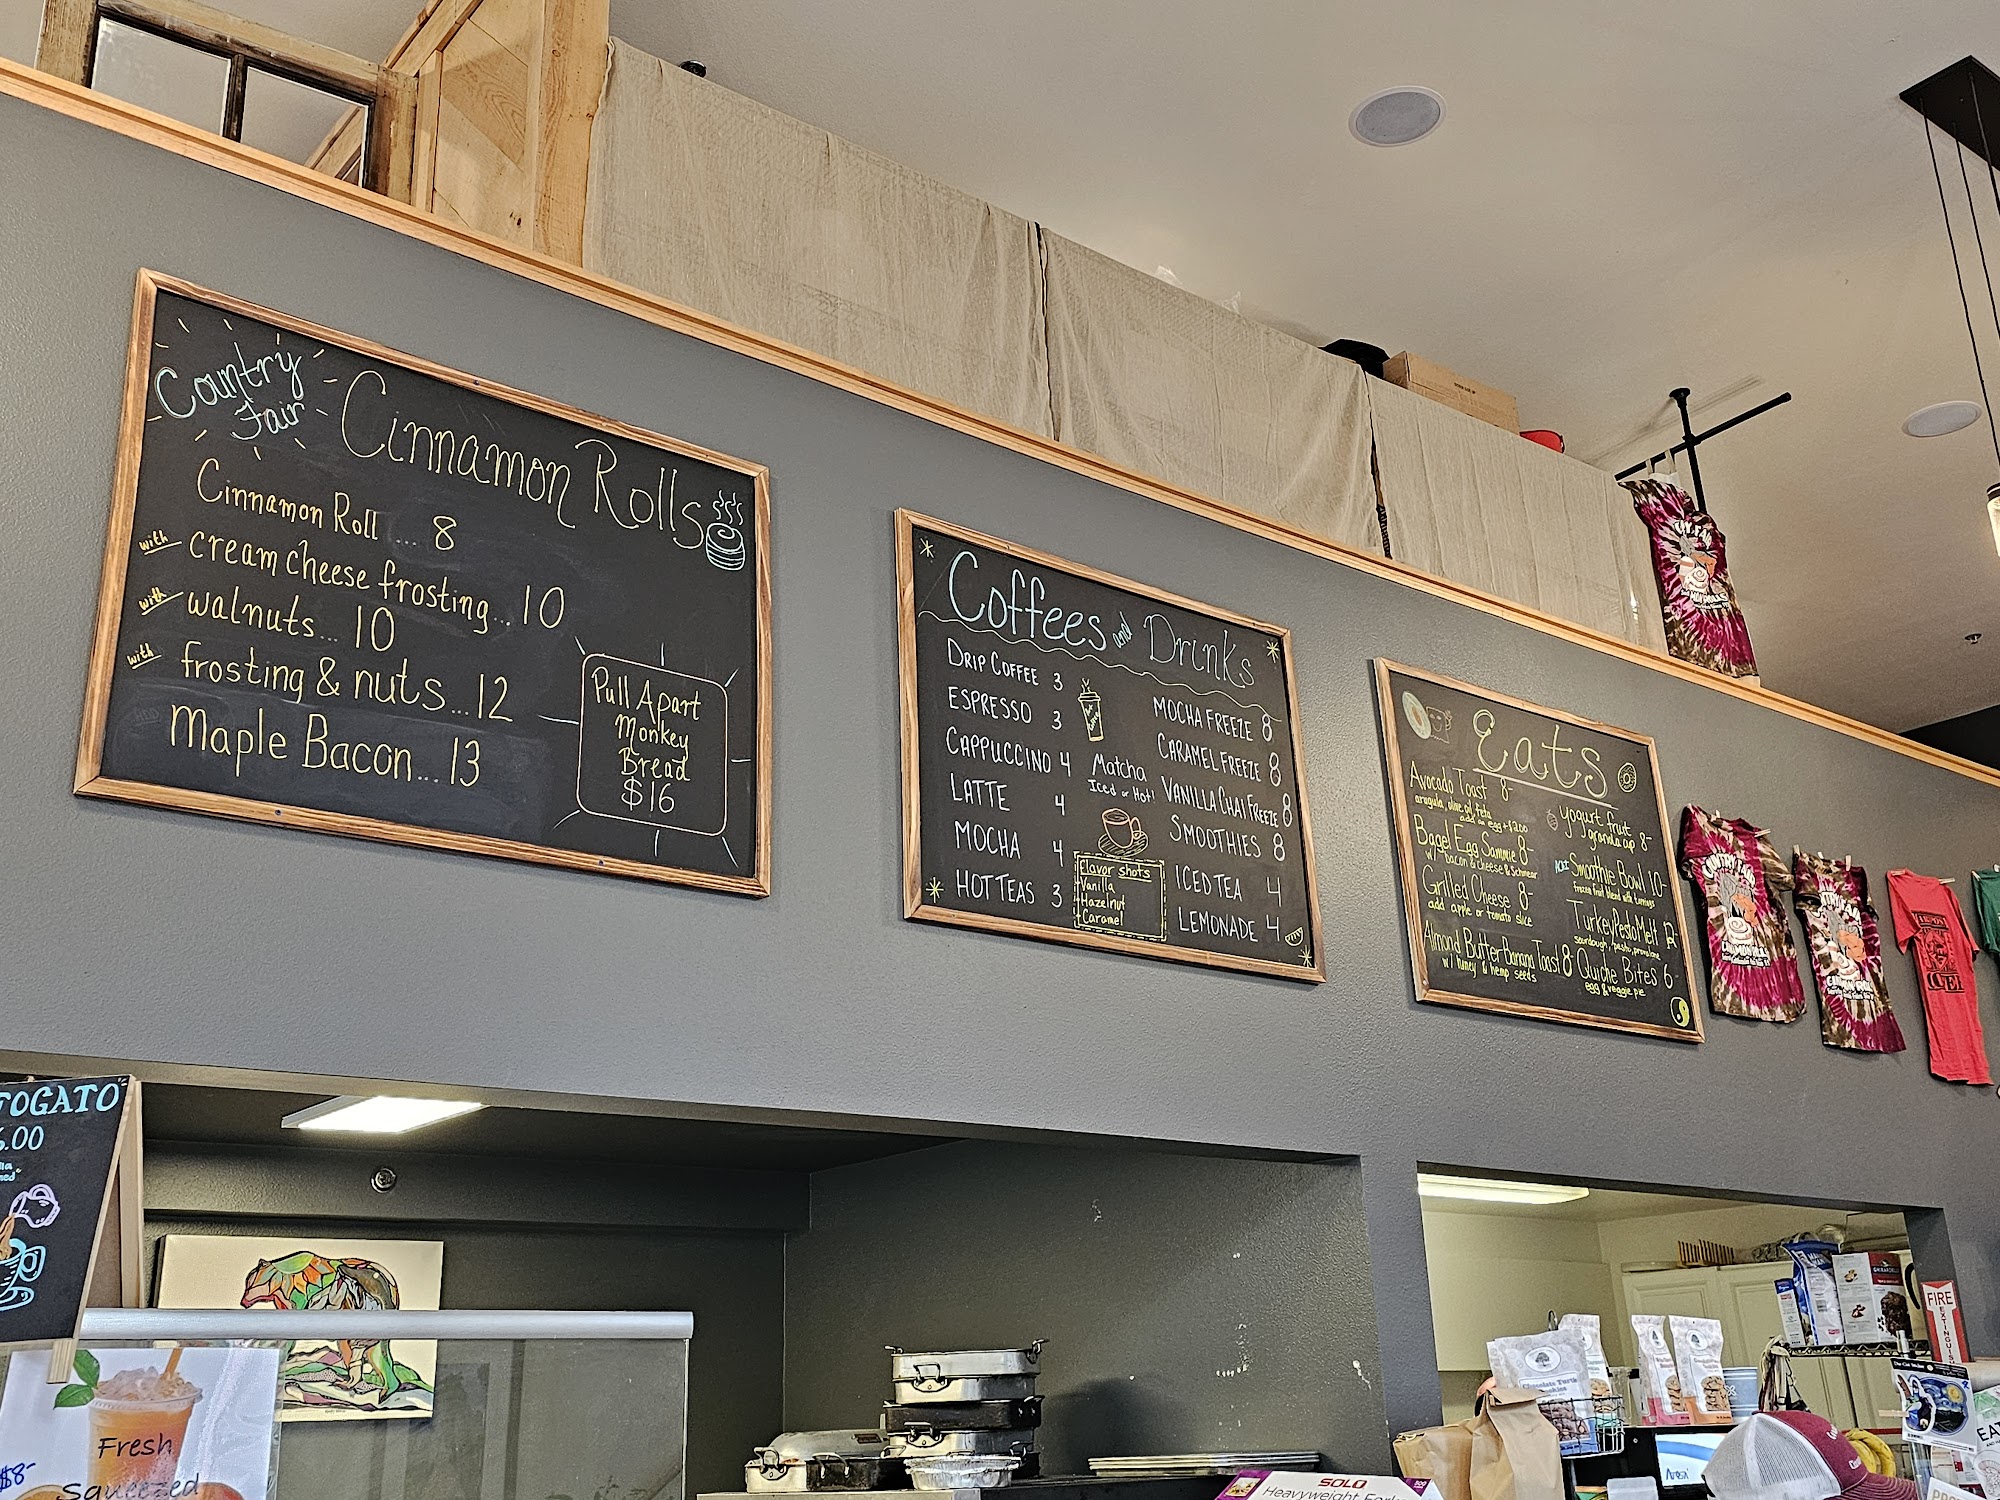 Country
Fair
Cinnamon Rolls
Cinnamon Roll ... 8
with cream cheese frosting... 10
with walnuts... 10
with frosting & nuts... 12
Maple Bacon... 13
Pull Apart
Monkey
Bread
$16
Coffees and Drinks
DRIP COFFEE 3
ESPRESSO 3
CAPPUCCINO 4
LATTE 4
MOCHA 4
HOT TEAS 3
Matcha
Iced or Hot!
Flavor shots
Vanilla
Hazelnut
Caramel
MOCHA FREEZE 8
CARAMEL FREEZE 8
VANILLA CHAI FREEZE 8
SMOOTHIES 8
ICED TEA 4
LEMONADE 4
Eats
Avocado Toast 8-
arugula, olive oil, feta
add an egg +$2.00
Bagel Egg Sammie 8-
w/ bacon & cheese & Schmear
Grilled Cheese 8-
add apple or tomato slice
Almond Butter Banana Toast 8
w/ honey & hemp seeds
yogurt fruit
granola cup 8-
Smoothie Bowl 10-
frozen fruit blend with toppings
Turkey Pesto Melt 12-
sourdough, pesto, provolone
Quiche Bites 6-
egg & veggie pie
FOGATO
6.00
Fresh
Squeezed
$8-
FIRE
EXTINGUISHER
GHIRARDELLI
SOLO
Heavyweight Forks